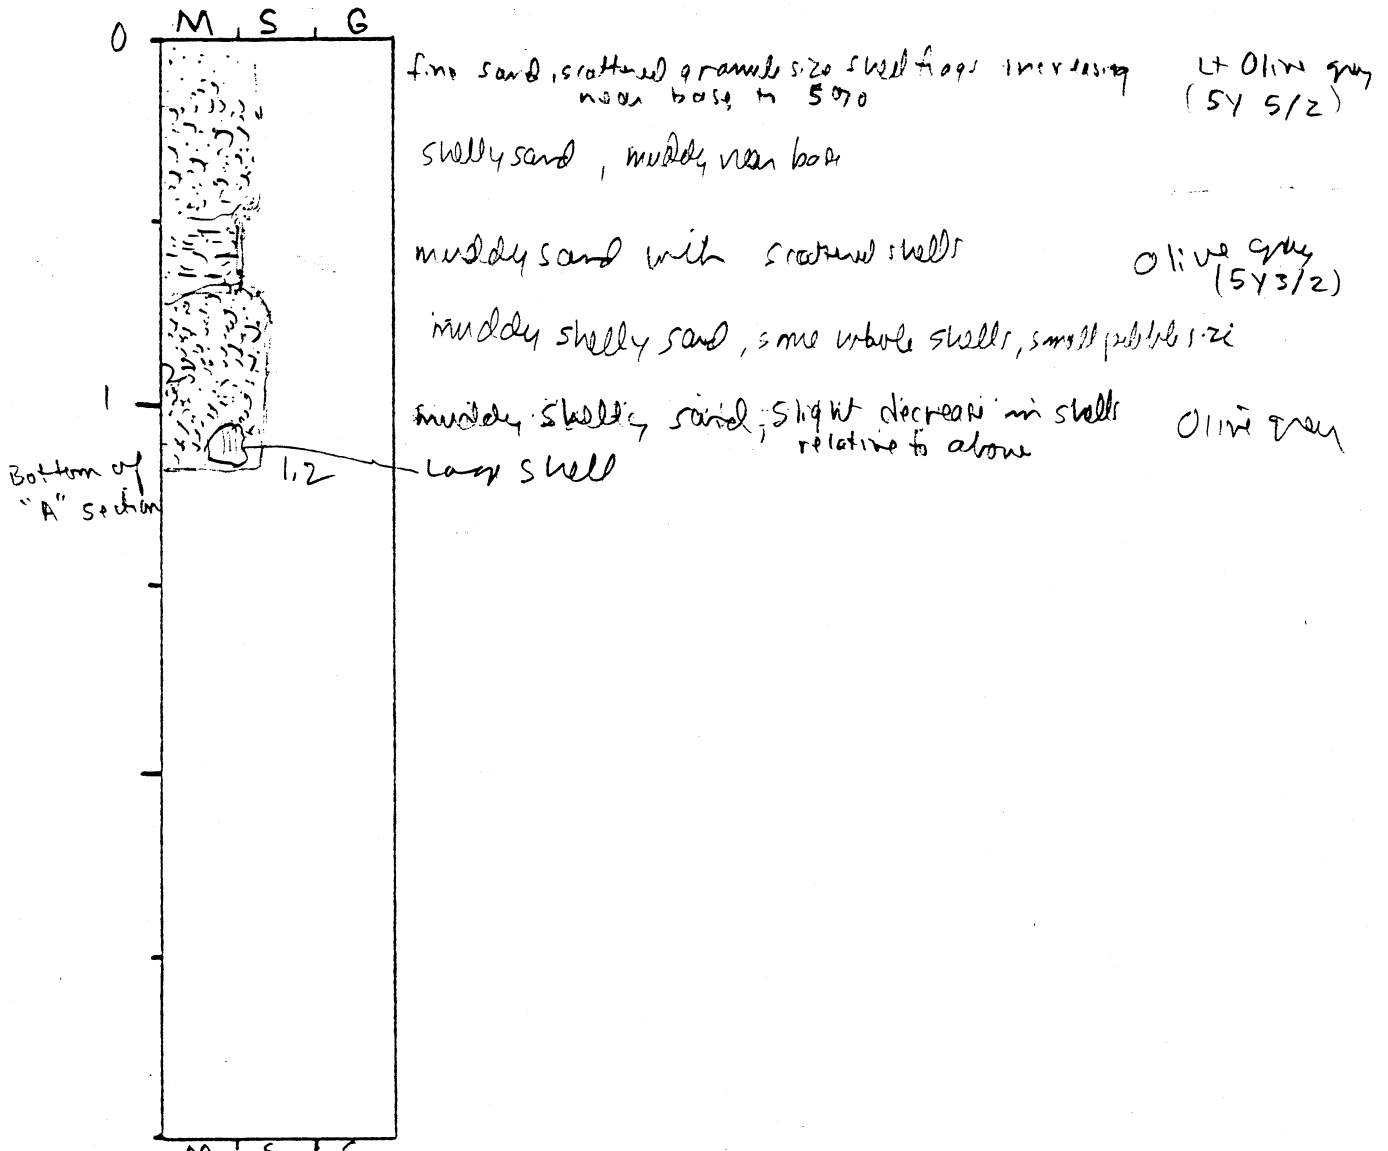 M S G
0
fine sand, scattered granule size shell frags increasing
near base to 50%
Lt Olive gray
(5Y 5/2)
shelly sand, muddy near base
muddy sand with scattered shells
Olive gray
(5Y3/2)
muddy shelly sand, some whole shells, small pebble size
1
muddy shelly sand, slight decrease in shells
relative to above
Olive gray
Large shell
1.2
Bottom of
"A" section
M S G